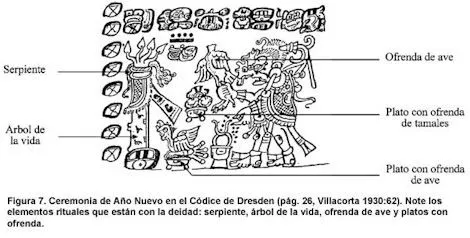 Serpiente
Ofrenda de ave
Arbol de
la vida
Plato con ofrenda
de tamales
Plato con ofrenda
de ave
Figura 7. Ceremonia de Año Nuevo en el Códice de Dresden (pág. 26, Villacorta 1930:62). Note los
elementos rituales que están con la deidad: serpiente, árbol de la vida, ofrenda de ave y platos con
ofrenda.